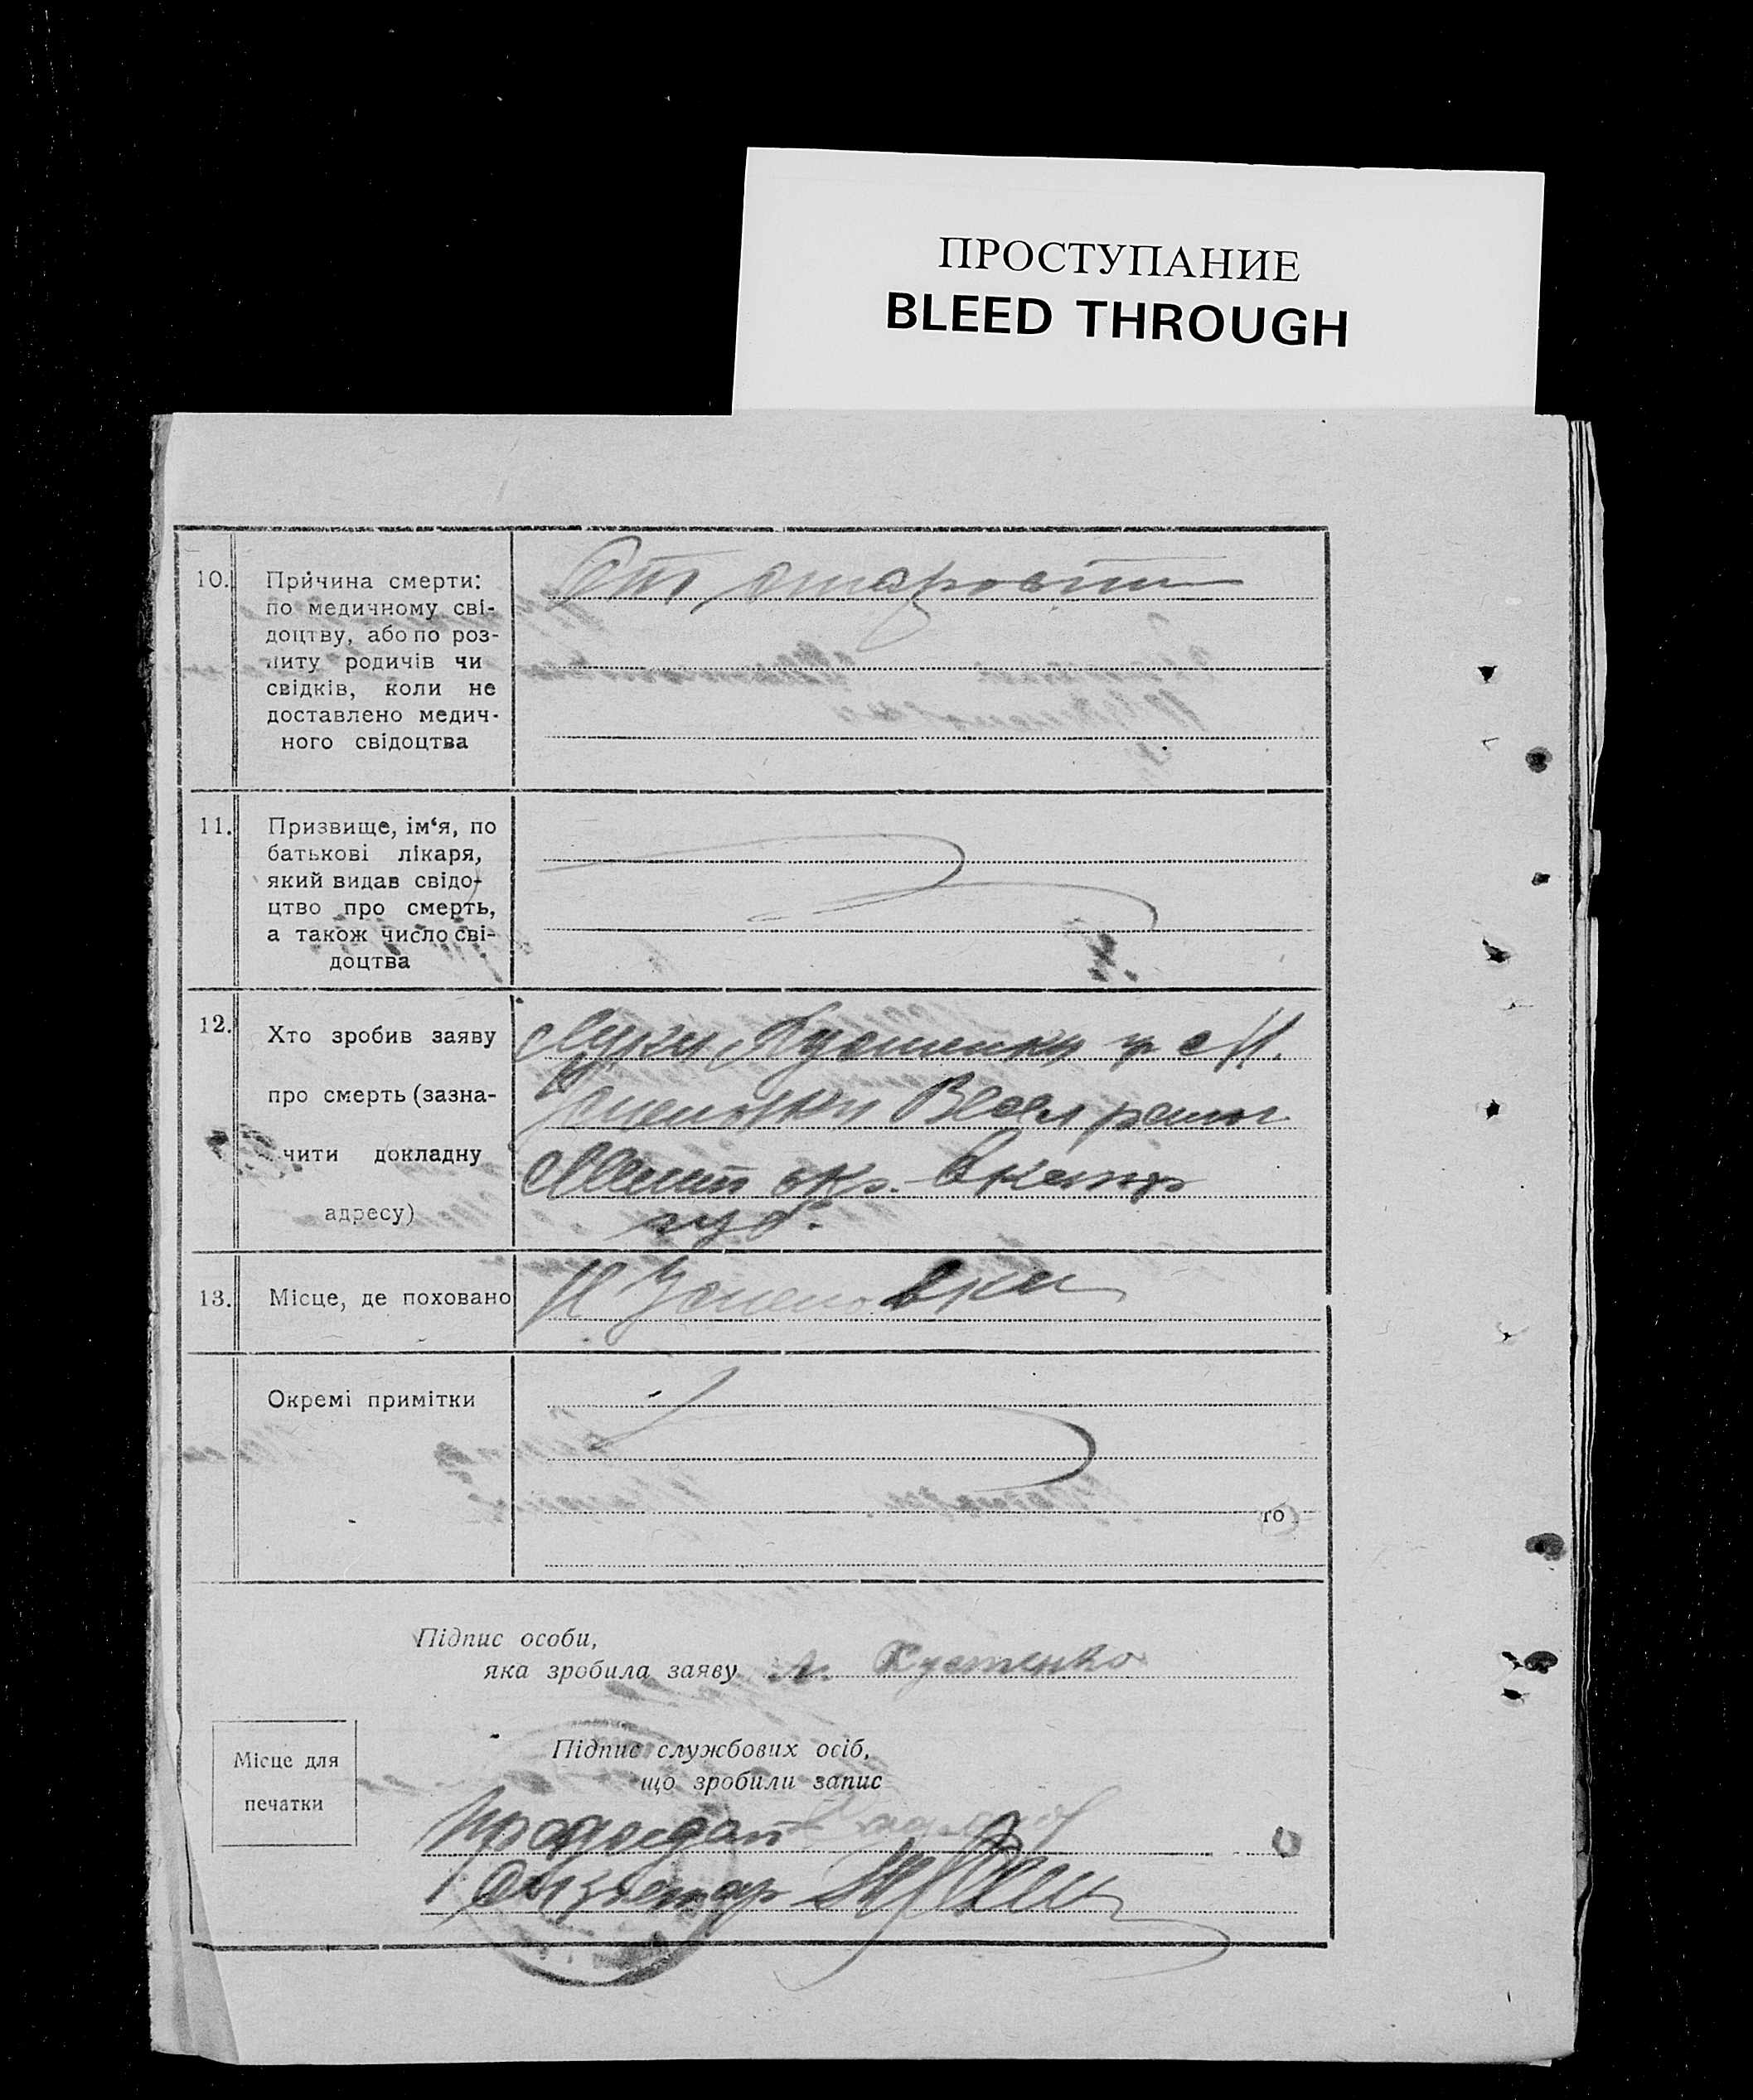 ПРОСТУПАНИЕ
BLEED THROUGH
10. Причина смерти:
по медичному сві-
доцтву, або по роз-
питу родичів чи
свідків, коли не
доставлено медич-
ного свідоцтва
От старости
11. Призвище, ім‘я, по
батькові лікаря,
який видав свідо-
цтво про смерть,
а також число сві-
доцтва
12. Хто зробив заяву
про смерть (зазна-
чити докладну
адресу)
Кустенко
окр.
губ.
13. Місце, де поховано
Н Успеновки
Окремі примітки
го
Підпис особи,
яка зробила заяву Л. Кустенко
Місце для
печатки
Підпис службових осіб,
що зробили запис